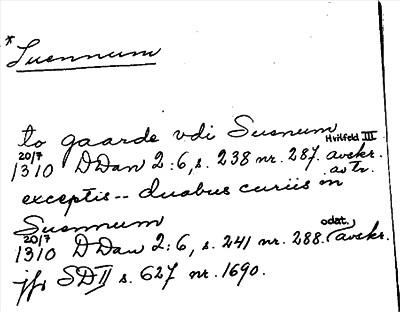 *Suennum
to gaarde vdi Susnum
Hvilfeld III
20/7
1310 DDan 2:6, s. 238 nr. 287. avskr.
av tr.
exceptis -- duobus curiis in
Suennum
20/7 odat.,
1310 DDan 2:6, s. 241 nr. 288. avskr.
jfr SD II s. 627 nr. 1690.